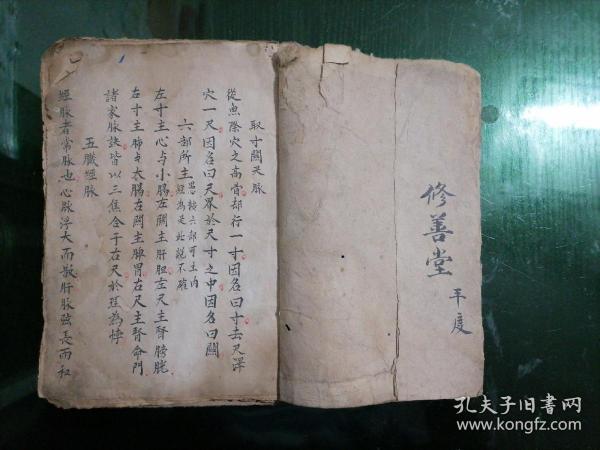 修善堂
平度
取寸關尺脉
從魚際穴之高骨却行一寸因名曰寸去尺澤
穴一尺因名曰尺界於尺寸之中因名曰關
六部所主
愚按六部可主內
經為是此說不確
左寸主心与小腸左關主肝胆左尺主腎膀胱
右寸主肺与大腸右關主脾胃右尺主腎命門
諸家脉訣皆以三焦合于右尺於理為悖
五臟經脉
經脉者常脉也心脉浮大而散肝脉弦長而和
孔夫子旧书网
www.kongfz.com